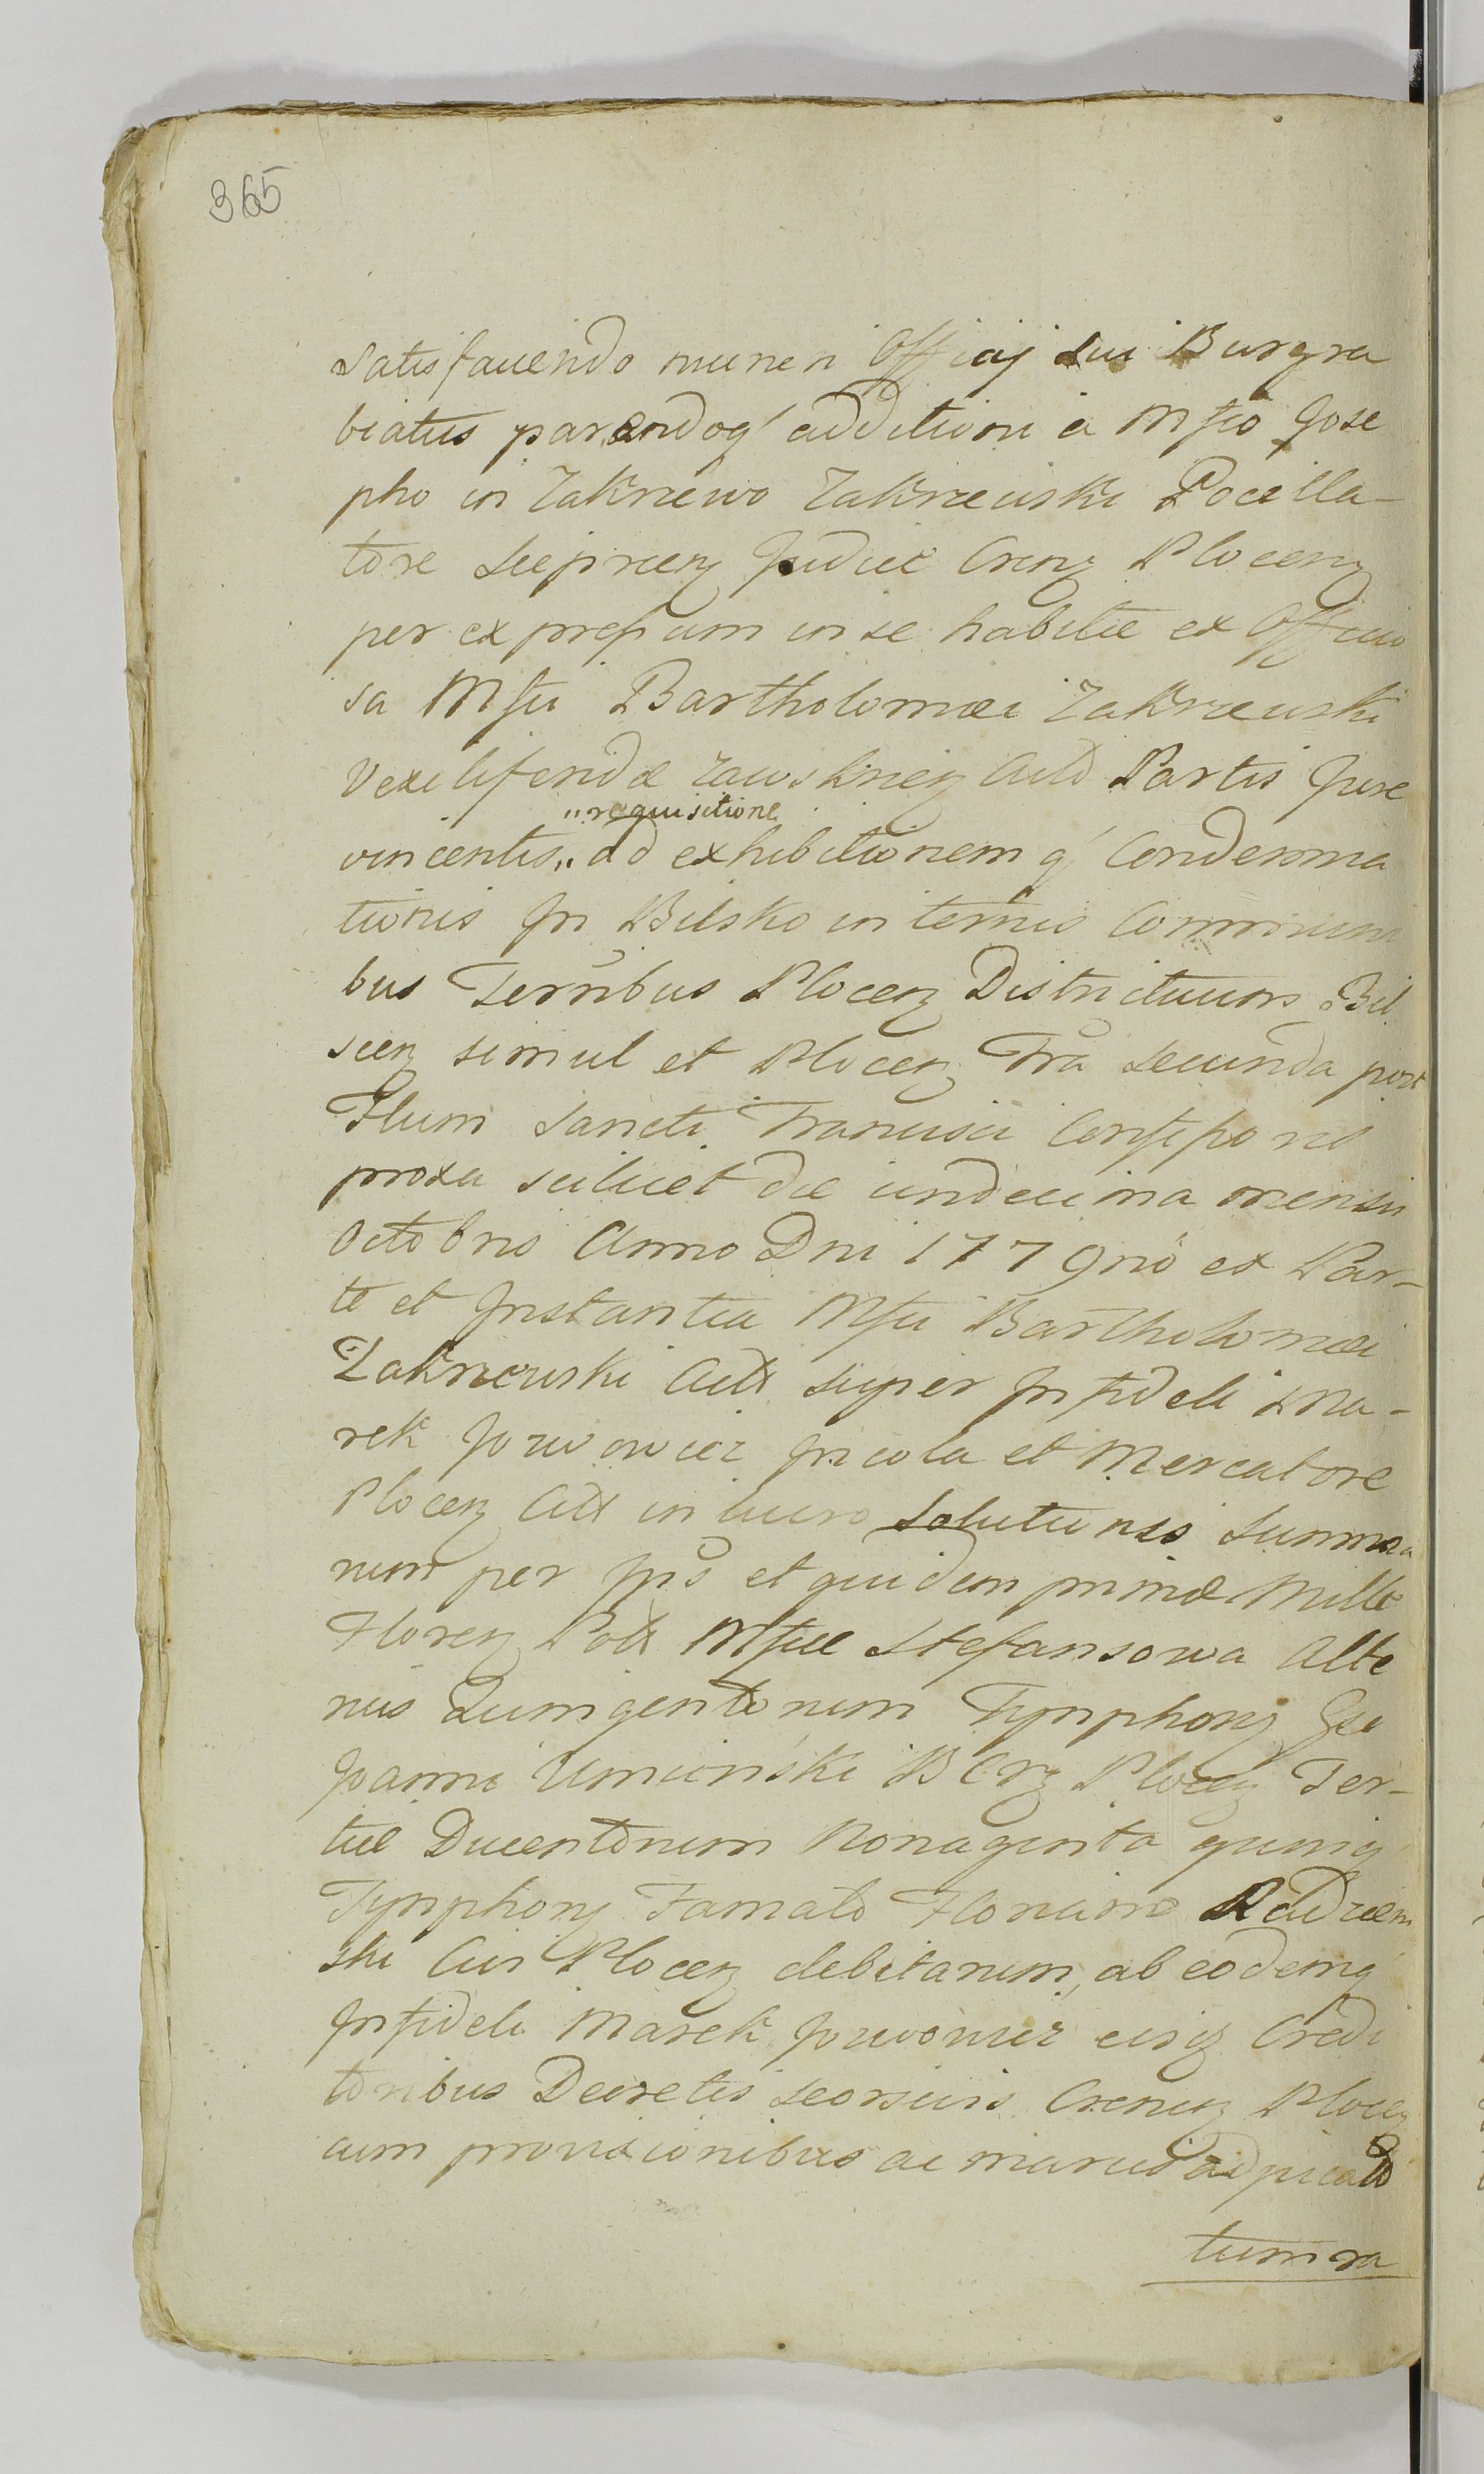 365
Satisfaciendo muneri Officij sui Burgra
biatus parendoq' additioni a Mfco Jose
pho in Zakrzewo Zakrzewski Pocilla-
tore Sieprcen Judice Cren Plocen
per expressum in se habitæ ex Officio
sa Mfci Bartholomæi Zakrzewski
Vexiliferidæ Zawskrnen Actd Partis Jure
"requisitione
vincentis „ad exhibitionemq' Condemna
tionis In Bilsko in termis Communi
bus Terribus Plocen Districtuum Bil
scen simul et Plocen Fria Secunda post
Ftum Sancti Francisci Confessoris
proxa scilicet die undecima mensis
Octobris Anno Dni 1779no ex Par-
te et Instantia Mfci Bartholomæi
Zakrzewski Actd super Infideli Ma-
rek Jozwowicz Incola et Mercatore
Plocen Citt in lucro Solutionis Summa
rum per Ips et quidem primæ Mille
Floren Pol Mfcæ Stefansowa Alte
rius Quingentorum Tynphon Gso
Joanni Uminski B Crz Plocen Ter-
tiæ Ducentorum Nonaginta quinq'
Tynphon Famato Floriano Radziem
ski Civi Plocen debitarum, ab eodemq'
Infideli Marek Jozwowicz eisq Credi
toribus Decretis seorsivis Crenen Plocen
cum provisionibus ac manus adpicato
tum ra